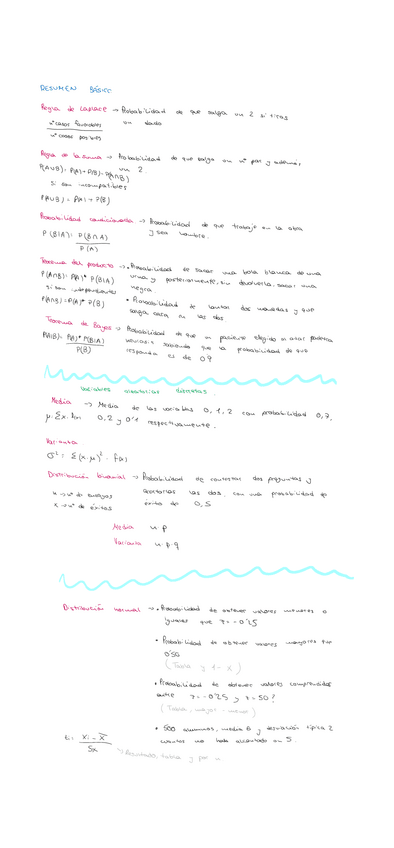 RESUMEN BÁSICO
Regla de Laplace → Probabilidad de que salga un 2 si tiras
un dado
nº casos favorables
nº casos posibles
Regla de la suma → Probabilidad de que salga un nº par y además
un 2
P(A∪B) = P(A) + P(B) - P(A∩B)
si son incompatibles
P(A∪B) = P(A) + P(B)
Probabilidad condicionada → Probabilidad de que trabaje en la obra
y sea hombre.
P(B|A) = P(B∩A)
P(A)
Teorema del producto → • Probabilidad de sacar una bola blanca de una
urna y posteriormente, sin devolverla, sacar una
negra
P(A∩B) = P(A) * P(B|A)
si son independientes
P(A∩B) = P(A) * P(B)
• Probabilidad de lanzar dos monedas y que
salga cara en las dos
Teorema de Bayes → Probabilidad de que un paciente elegido al azar padezca
neurosis sabiendo que la probabilidad de que
responda es de 0'9
P(A|B) = P(A) * P(B|A)
P(B)
Variables aleatorias discretas
Media → Media de las variables 0, 1, 2 con probabilidad 0,7,
0,2 y 0'1 respectivamente.
Varianza
σ² = Σ(x-μ)² · f(x)
Distribución binomial → Probabilidad de contestar dos preguntas y
acertarlas las dos, con una probabilidad de
éxito de 0,5
n → nº de ensayos
x → nº de éxitos
Media n·p
Varianza n·p·q
Distribución normal → • Probabilidad de obtener valores menores o
iguales que z = -0'25
• Probabilidad de obtener valores mayores que
0'50
(Tabla y 1 - X)
• Probabilidad de obtener valores comprendidos
entre z = -0'25 y z = 50?
(Tabla, mayor - menor)
• 500 alumnos, media 6 y desviación típica 2
cuantos no han alcanzado un 5.
z: xi - x̄
Sx
tabla y por n